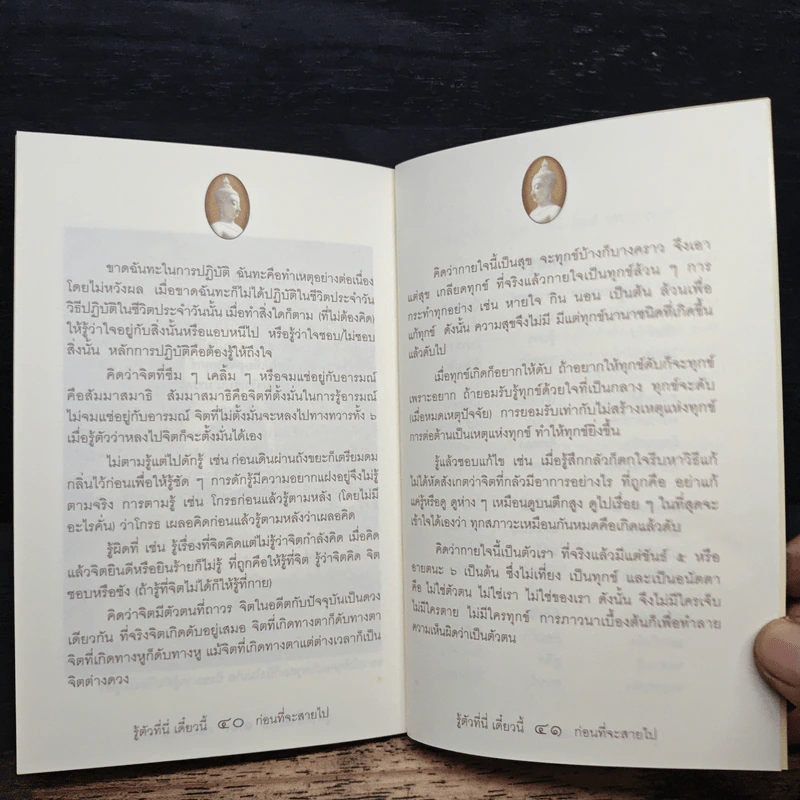 ขาดฉันทะในการปฏิบัติ ฉันทะคือทำเหตุอย่างต่อเนื่อง
โดยไม่หวังผล เมื่อขาดฉันทะก็ไม่ได้ปฏิบัติในชีวิตประจำวัน
วิธีปฏิบัติในชีวิตประจำวันนั้น เมื่อทำสิ่งใดก็ตาม (ที่ไม่ต้องคิด)
ให้รู้ว่าใจอยู่กับสิ่งนั้นหรือแอบหนีไป หรือรู้ว่าใจชอบ/ไม่ชอบ
สิ่งนั้น หลักการปฏิบัติคือต้องรู้ให้ถึงใจ
คิดว่าจิตที่ซึม ๆ เคลิ้ม ๆ หรือจมแช่อยู่กับอารมณ์
คือสัมมาสมาธิ สัมมาสมาธิคือจิตที่ตั้งมั่นในการรู้อารมณ์
ไม่จมแช่อยู่กับอารมณ์ จิตที่ไม่ตั้งมั่นจะหลงไปทางทวารทั้ง ๖
เมื่อรู้ตัวว่าหลงไปจิตก็จะตั้งมั่นได้เอง
ไม่ตามรู้แต่ไปดักรู้ เช่น ก่อนเดินผ่านถังขยะก็เตรียมดม
กลิ่นไว้ก่อนเพื่อให้รู้ชัด ๆ การดักรู้มีความอยากแฝงอยู่จึงไม่รู้
ตามจริง การตามรู้ เช่น โกรธก่อนแล้วรู้ตามหลัง (โดยไม่มี
อะไรคั่น) ว่าโกรธ เผลอคิดก่อนแล้วรู้ตามหลังว่าเผลอคิด
รู้ผิดที่ เช่น รู้เรื่องที่จิตคิดแต่ไม่รู้ว่าจิตกำลังคิด เมื่อคิด
แล้วจิตยินดีหรือยินร้ายก็ไม่รู้ ที่ถูกคือให้รู้ที่จิต รู้ว่าจิตคิด จิต
ชอบหรือชัง (ถ้ารู้ที่จิตไม่ได้ก็ให้รู้ที่กาย)
คิดว่าจิตมีตัวตนที่ถาวร จิตในอดีตกับปัจจุบันเป็นดวง
เดียวกัน ที่จริงจิตเกิดดับอยู่เสมอ จิตที่เกิดทางตาก็ดับทางตา
จิตที่เกิดทางหูก็ดับทางหู แม้จิตที่เกิดทางตาแต่ต่างเวลาก็เป็น
จิตต่างดวง
รู้ตัวที่นี่ เดี๋ยวนี้ ๔๐ ก่อนที่จะสายไป
คิดว่ากายใจนี้เป็นสุข จะทุกข์บ้างก็บางคราว จึงเอา
แต่สุข เกลียดทุกข์ ที่จริงแล้วกายใจเป็นทุกข์ล้วน ๆ การ
กระทำทุกอย่าง เช่น หายใจ กิน นอน เป็นต้น ล้วนเพื่อ
แก้ทุกข์ ดังนั้น ความสุขจึงไม่มี มีแต่ทุกข์นานาชนิดที่เกิดขึ้น
แล้วดับไป
เมื่อทุกข์เกิดก็อยากให้ดับ ถ้าอยากให้ทุกข์ดับก็จะทุกข์
เพราะอยาก ถ้ายอมรับรู้ทุกข์ด้วยใจที่เป็นกลาง ทุกข์จะดับ
(เมื่อหมดเหตุปัจจัย) การยอมรับเท่ากับไม่สร้างเหตุแห่งทุกข์
การต่อต้านเป็นเหตุแห่งทุกข์ ทำให้ทุกข์ยิ่งขึ้น
รู้แล้วชอบแก้ไข เช่น เมื่อรู้สึกกลัวก็ตกใจรีบหาวิธีแก้
ไม่ได้หัดสังเกตว่าจิตที่กลัวมีอาการอย่างไร ที่ถูกคือ อย่าแก้
แค่รู้หรือดู ดูห่าง ๆ เหมือนดูบนตึกสูง ดูไปเรื่อย ๆ ในที่สุดจะ
เข้าใจได้เองว่า ทุกสภาวะเหมือนกันหมดคือเกิดแล้วดับ
คิดว่ากายใจนี้เป็นตัวเรา ที่จริงแล้วมีแต่ขันธ์ ๕ หรือ
อายตนะ ๖ เป็นต้น ซึ่งไม่เที่ยง เป็นทุกข์ และเป็นอนัตตา
คือ ไม่ใช่ตัวตน ไม่ใช่เรา ไม่ใช่ของเรา ดังนั้น จึงไม่มีใครเจ็บ
ไม่มีใครตาย ไม่มีใครทุกข์ การภาวนาเบื้องต้นก็เพื่อทำลาย
ความเห็นผิดว่าเป็นตัวตน
รู้ตัวที่นี่ เดี๋ยวนี้ ๔๑ ก่อนที่จะสายไป